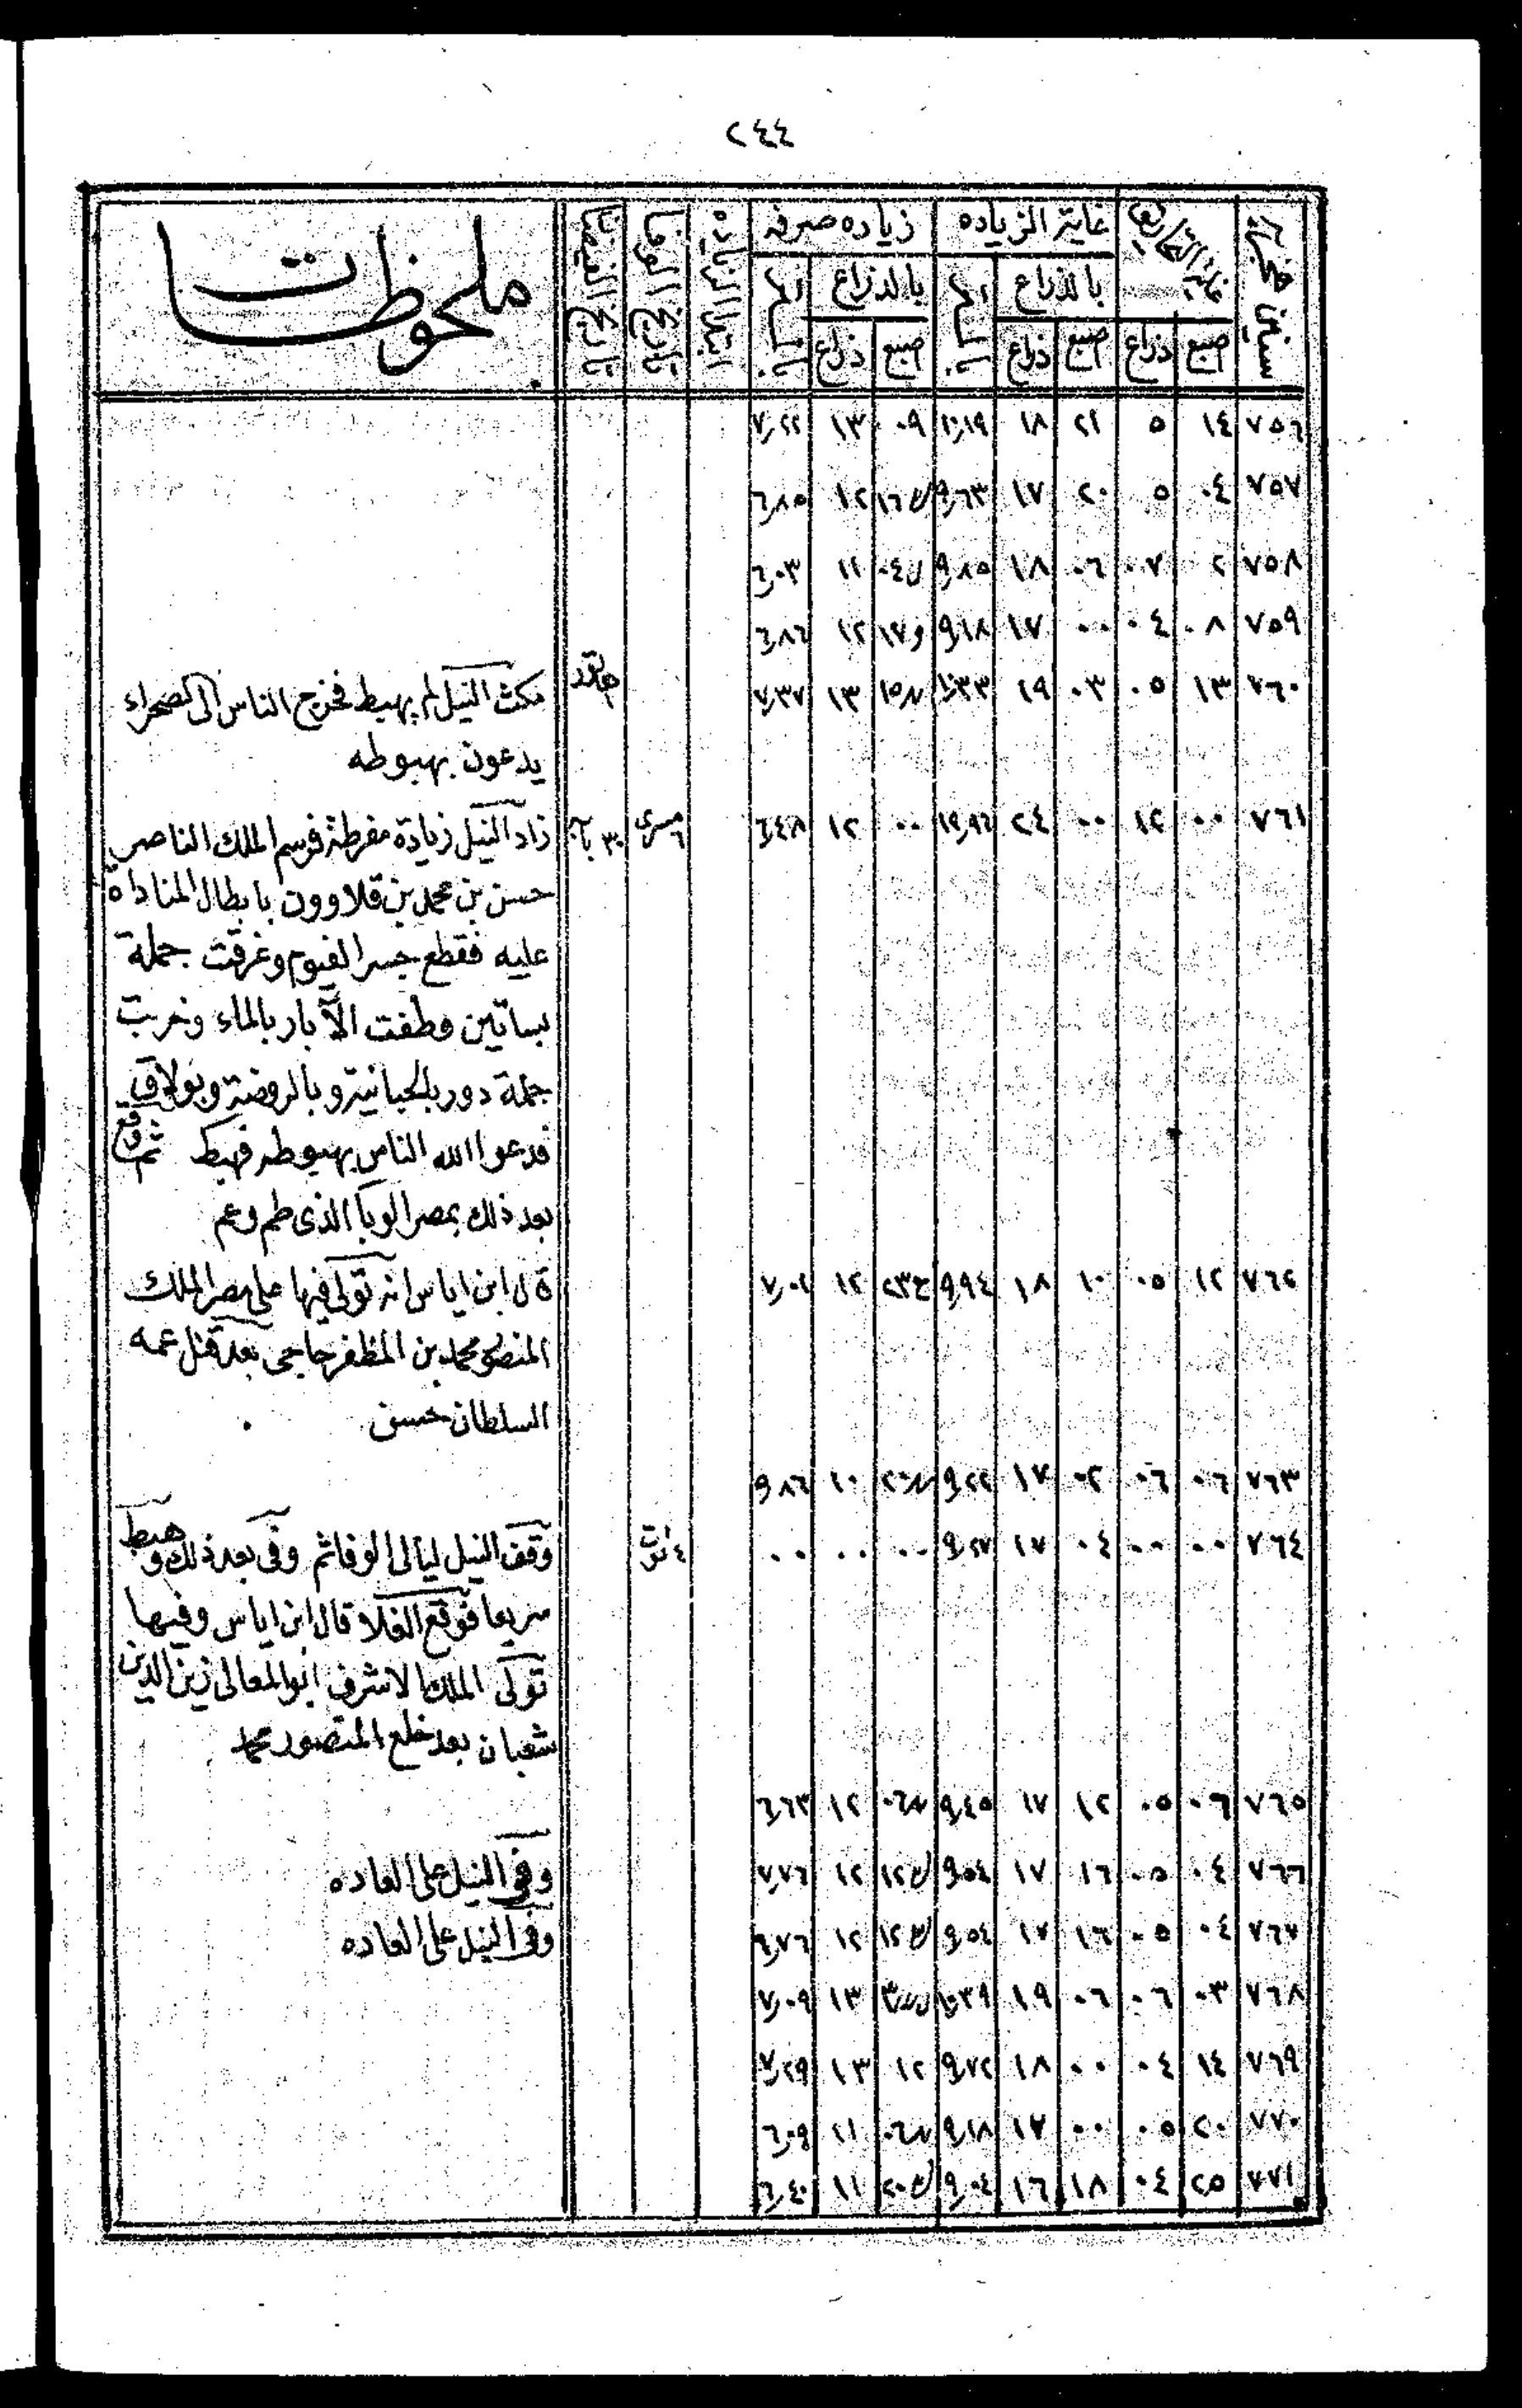 ٢٤٤
سنين هجرية غاية التحاريق غاية الزياده زياده صرفه ابتدا الزياده تاريخ الوفا تاريخ الفيضان ملحوظات
بالذراع بالمتر بالذراع بالمتر
اصبع ذراع اصبع ذراع اصبع ذراع
٧٥٦ ١٤ ٥ ٢١ ١٨ ١٠,١٩ ٠٩ ١٣ ٧,٢٢
٧٥٧ ٠٤ ٥ ٢٠ ١٧ ٩,٦٣ ١٦ ١٢ ٦,٨٥
٧٥٨ ٢ ٠٧ ٠٦ ١٨ ٩,٨٥ ٠٤ ١١ ٦,٠٣
٧٥٩ ٠٨ ٠٤ ٠٠ ١٧ ٩,١٨ ١٦ ١٢ ٦,٨٦
٧٦٠ ١٣ ٠٥ ٠٣ ١٩ ١٠,٣٣ ١٥ ١٣ ٧,٣٧ مكث النيل لم يهبط فخرج الناس الى الصحراء
يدعون بهبوطه
٧٦١ ٠٠ ١٢ ٠٠ ٢٤ ١٢,٩٦ ٠٠ ١٢ ٦,٤٨ ٦ مسرى ٣٠ بابه زاد النيل زيادة مفرطة فرسم الملك الناصر
حسن بن محمد بن قلاوون بابطال المناداة
عليه فقطع جسر الفيوم وغرقت جملة
بساتين وطفت الآبار بالماء وخربت
جملة دور بالجبانية وبالروضة وبولاق
فدعوا الله الناس بهبوطه فهبط ثم وقع
بعد ذلك بمصر الوبا الذى طم وعم
٧٦٢ ١٢ ٠٥ ١٠ ١٨ ٩,٩٤ ٢٣ ١٢ ٧,٠١ قال ابن اياس انه تولى فيها على مصر الملك
المنصور محمد بن المظفر حاجى بعد قتل عمه
السلطان حسن
٧٦٣ ٠٦ ٠٦ ٠٢ ١٧ ٩,٢٢ ٢٠ ١٠ ٩,٨٦
٧٦٤ ٠٠ ٠٠ ٠٤ ١٧ ٩,٢٧ ٠٠ ٠٠ ٠٠ ٤ توت وقف النيل ليالى الوفا ثم وفى بعد ذلك وهبط
سريعا فوقع الغلا قال ابن اياس وفيها
تولى الملك الاشرف ابو المعالى زين الدين
شعبان بعد خلع المنصور محمد
٧٦٥ ٠٦ ٠٥ ١٢ ١٧ ٩,٤٥ ٠٦ ١٢ ٦,٦٣
٧٦٦ ٠٤ ٠٥ ١٦ ١٧ ٩,٥٤ ١٢ ١٢ ٧,٧٦ وفى النيل على العاده
٧٦٧ ٠٤ ٠٥ ١٦ ١٧ ٩,٥٤ ١٢ ١٢ ٦,٧٦ وفى النيل على العاده
٧٦٨ ٠٣ ٠٦ ٠٦ ١٩ ١٠,٣٩ ٣ ١٣ ٧,٠٩
٧٦٩ ١٤ ٠٤ ٠٠ ١٨ ٩,٧٢ ١٢ ١٣ ٧,٢٩
٧٧٠ ٢٠ ٠٥ ٠٠ ١٧ ٩,١٨ ٠٦ ١١ ٦,٠٩
٧٧١ ٢٥ ٠٤ ١٨ ١٦ ٩,٠٤ ٢٠ ١١ ٦,٤٠